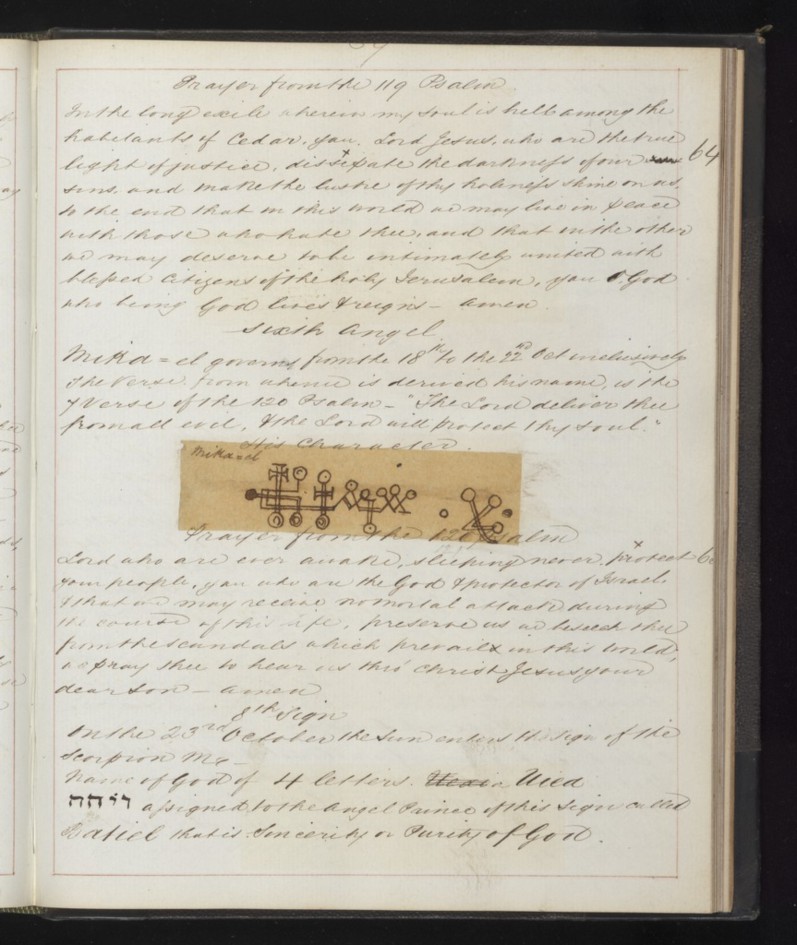 Prayer from the 119 Psalm
In the long exile wherein my soul is held among the
habitants of Cedar, you, Lord Jesus, who are the true
light of justice, dissipate the darkness of our
64
sins, and make the lustre of thy holiness shine on us,
to the end that in this world we may live in peace
with those who hate thee, and that in the other
we may deserve to be intimately united with
blessed Citizens of the holy Jerusalem, you O God
who being God lives & reigns - amen
Sixth Angel
Mika=el governs from the 18th to the 22nd Oct inclusively
The Verse from whence is derived his name, is the
7 Verse of the 120 Psalm - "The Lord deliver thee
from all evil, & the Lord will protect thy soul."
His Character.
Mika=el
Prayer from the 120 Psalm
Lord who are ever awake, sleeping never, protect
your people, you who are the God & protector of Israel
& that we may receive no mortal attack during
the course of this life, preserve us we beseech thee
from the scandals which prevail in this world,
we pray thee to hear us thro' Christ Jesus your
dear Son - amen
8th Sign
On the 23rd October the Sun enters the sign of the
Scorpion
Name of God of 4 letters.
assigned to the Angel Prince of this sign called
that is Sincerity or Purity of God.